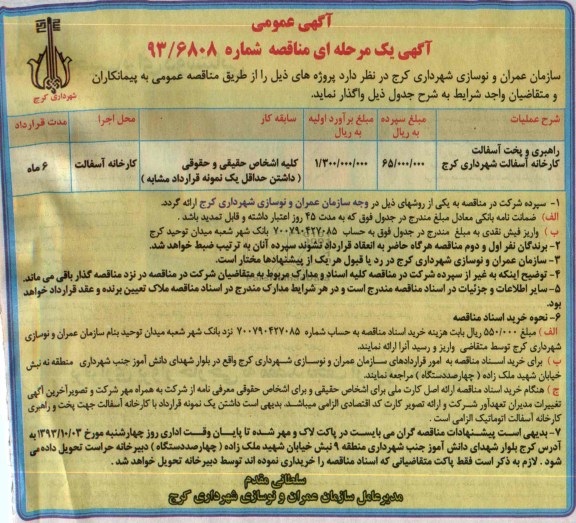 آگهی عمومی
آگهی یک مرحله ای مناقصه شماره ۹۳/۶۸۰۸
شهرداری کرج
سازمان عمران و نوسازی شهرداری کرج در نظر دارد پروژه های ذیل را از طریق مناقصه عمومی به پیمانکاران
و متقاضیان واجد شرایط به شرح جدول ذیل واگذار نماید.
شرح عملیات
مبلغ سپرده به ریال
مبلغ برآورد اولیه به ریال
سابقه کار
محل اجرا
مدت قرارداد
راهبری و پخت آسفالت
کارخانه آسفالت شهرداری کرج
۶۵/۰۰۰/۰۰۰
۱/۳۰۰/۰۰۰/۰۰۰
کلیه اشخاص حقیقی و حقوقی
( داشتن حداقل یک نمونه قرارداد مشابه )
کارخانه آسفالت
۶ ماه
۱- سپرده شرکت در مناقصه به یکی از روشهای ذیل در وجه سازمان عمران و نوسازی شهرداری کرج ارائه گردد.
الف) ضمانت نامه بانکی معادل مبلغ مندرج در جدول فوق که به مدت ۴۵ روز اعتبار داشته و قابل تمدید باشد .
ب ) واریز فیش نقدی به مبلغ مندرج در جدول فوق به حساب ۷۰۰۷۹۰۴۲۷۰۸۵ بانک شهر شعبه میدان توحید کرج
۲- برندگان نفر اول و دوم مناقصه هرگاه حاضر به انعقاد قرارداد نشوند سپرده آنان به ترتیب ضبط خواهد شد.
۳- سازمان عمران و نوسازی شهرداری کرج در رد یا قبول هر یک از پیشنهادها مختار است.
۴- توضیح اینکه به غیر از سپرده شرکت در مناقصه کلیه اسناد و مدارک مربوط به متقاضیان شرکت در مناقصه در نزد مناقصه گذار باقی می ماند.
۵- سایر اطلاعات و جزئیات در اسناد مناقصه مندرج است و در هر شرایط مدارک مندرج در اسناد مناقصه ملاک تعیین برنده و عقد قرارداد خواهد
بود.
۶- نحوه خرید اسناد مناقصه
الف ) مبلغ ۵۵۰/۰۰۰ ریال بابت هزینه خرید اسناد مناقصه به حساب شماره ۷۰۰۷۹۰۴۲۷۰۸۵ نزد بانک شهر شعبه میدان توحید بنام سازمان عمران و نوسازی
شهرداری کرج توسط متقاضی واریز و رسید آنرا ارائه نمایند.
ب ) برای خرید اسناد مناقصه به امور قراردادهای سازمان عمران و نوسازی شهرداری کرج واقع در بلوار شهدای دانش آموز جنب شهرداری منطقه نه نبش
خیابان شهید ملک زاده ( چهارصددستگاه ) مراجعه نمایند.
ج ) هنگام خرید اسناد مناقصه ارائه اصل کارت ملی برای اشخاص حقیقی و برای اشخاص حقوقی معرفی نامه از شرکت به همراه مهر شرکت و تصویرآخرین آگهی
تغییرات مدیران تعهدآور شرکت و ارائه تصویر کارت کد اقتصادی الزامی میباشد. بدیهی است داشتن یک نمونه قرارداد با کارخانه آسفالت جهت پخت و راهبری
کارخانه آسفالت اتوماتیک الزامی است .
۷- بدیهی است پیشنهادات مناقصه گران می بایست در پاکت لاک و مهر شده تا پایان وقت اداری روز چهارشنبه مورخ ۱۳۹۳/۱۰/۰۳ به
آدرس کرج بلوار شهدای دانش آموز جنب شهرداری منطقه ۹ نبش خیابان شهید ملک زاده ( چهارصددستگاه ) دبیرخانه حراست تحویل داده می
شود . لازم به ذکر است فقط پاکت متقاضیانی که اسناد مناقصه را خریداری نموده اند توسط دبیرخانه تحویل خواهد شد .
سلطانی مقدم
مدیرعامل سازمان عمران و نوسازی شهرداری کرج